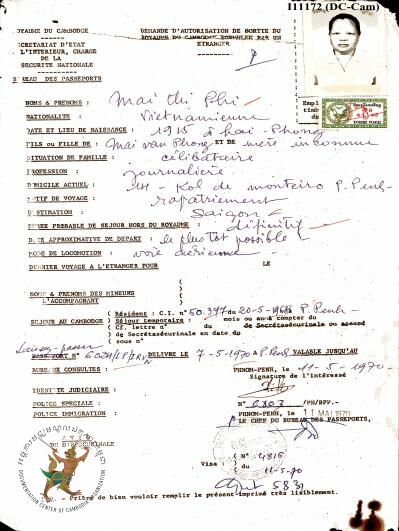 111172 (DC-Cam)
ROYAUME DU CAMBODGE
SECRETARIAT D'ETAT
A L'INTERIEUR, CHARGE
DE LA
SECURITE NATIONALE
BUREAU DES PASSEPORTS
DEMANDE D'AUTORISATION DE SORTIE DU
ROYAUME DU CAMBODGE FORMULEE PAR UN
ETRANGER
NOMS & PRENOMS : Mai thi Phi
NATIONALITE : Vietnamienne
DATE ET LIEU DE NAISSANCE : 1915 à hai-Phong
FILS ou FILLE DE : Mai van Phong ET DE mère inconnue
SITUATION DE FAMILLE : célibataire
PROFESSION : journalière
DOMICILE ACTUEL : 14 - Kol de monteiro P. Penh
MOTIF DE VOYAGE : rapatriement
DESTINATION : Saigon
DUREE PROBABLE DE SEJOUR HORS DU ROYAUME : définitif
DATE APPROXIMATIVE DE DEPART : le plus tôt possible
MODE DE LOCOMOTION : voie aérienne
DERNIER VOYAGE A L'ETRANGER POUR LE
NOMS & PRENOMS DES MINEURS
L'ACCOMPAGNANT
SEJOUR AU CAMBODGE
Résident : C.I. n° 50.377 du 20-5-1968 à P. Penh
Séjour temporaire : mois ou ans à compter du
Cf. lettre n° du de Secrétsdeurinale ou accord
de Secrétsdeurinale en date du
sous n°
Laissez-passer
PASSPORT N° DELIVRE LE 7-5-1970 à P. Penh VALABLE JUSQU'AU
BUREAU DE CONSULTES : PHNOM-PENH, le 11-5-1970
Signature de l'intéressé
IDENTITE JUDICIAIRE :
N° 6803 /PN/BPP.-
POLICE SPECIALE :
POLICE IMMIGRATION :
PHNOM-PENH, le 11 MAI 1970
LE CHEF DU BUREAU DES PASSEPORTS,
Visa
N° 4816
du 11-5-70
5831
DOCUMENTATION CENTER OF CAMBODIA
Prière de bien vouloir remplir le présent imprimé très lisiblement.